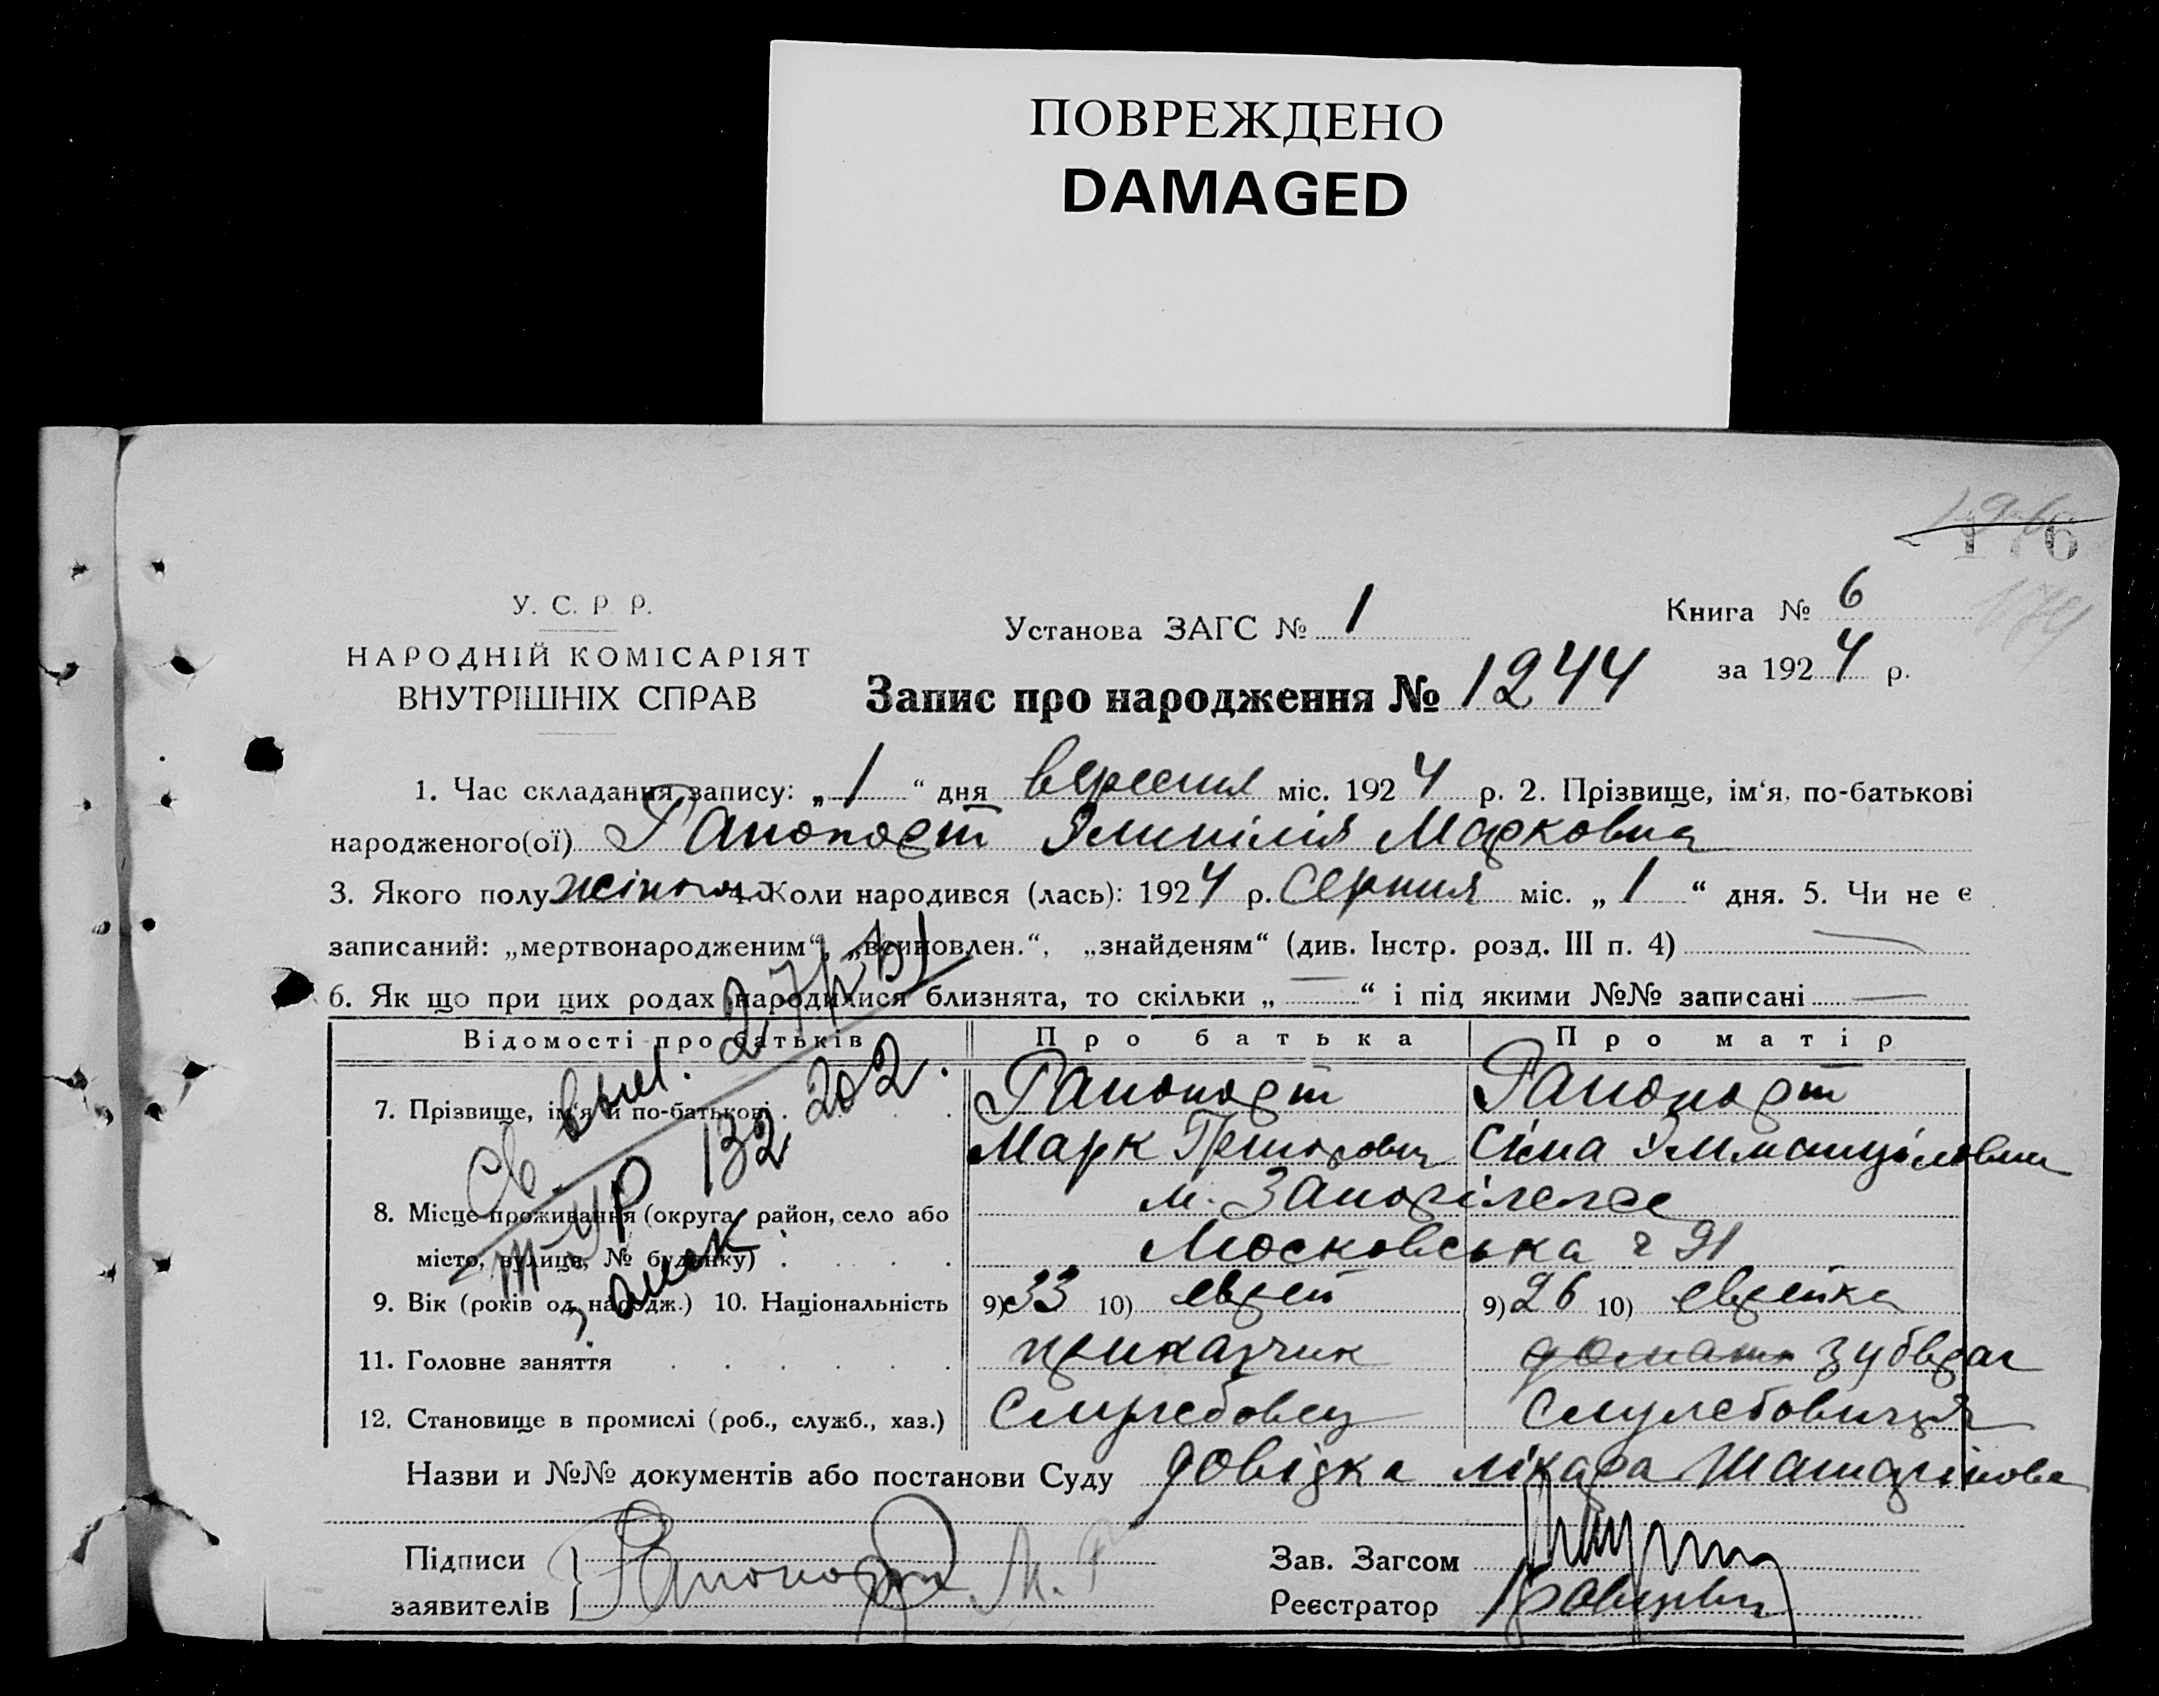 ПОВРЕЖДЕНО
DAMAGED
176
196
174
У. С. Р Р.
НАРОДНІЙ КОМІСАРІЯТ
ВНУТРІШНІХ СПРАВ
Установа ЗАГС № 1
Книга № 6
за 1924 р.
Запис про народження № 1244
1. Час складання запису: „1“ дня вересня міс. 1924 р. 2. Прізвище, ім‘я, по-батькові
народженого(ої) Рапопорт Марковна
3. Якого полу жіноч 4. Коли народився (лась): 1924 р. Серпня міс. „1“ дня. 5. Чи не є
записаний: „мертвонародженим“, „всиновлен.“, „знайденям“ (див. Інстр. розд. III п. 4) —
6. Як що при цих родах народилися близнята, то скільки „—“ і під якими №№ записані —
Відомості про батьків Про батька Про матір
7. Прізвище, ім‘я й по-батькові . Рапопорт Рапопорт
Марк Григорович Сіма Эммануіловна
8. Місце проживання (округа, район, село або м. Запоріжже
місто, вулиця, № будинку) . Московська ч 91
9. Вік (років од народж.) 10. Національність 9) 33 10) еврей 9) 26 10) еврейка
11. Головне заняття приказчик домашн зубврач
12. Становище в промислі (роб., служб., хаз.) Службовец Службовиця
Св. выд. 27/IV 51
УР 132202.
Назви и №№ документів або постанови Суду довідка лікара
Підписи
заявителів Рапопорт М. Г
Зав. Загсом
Реєстратор